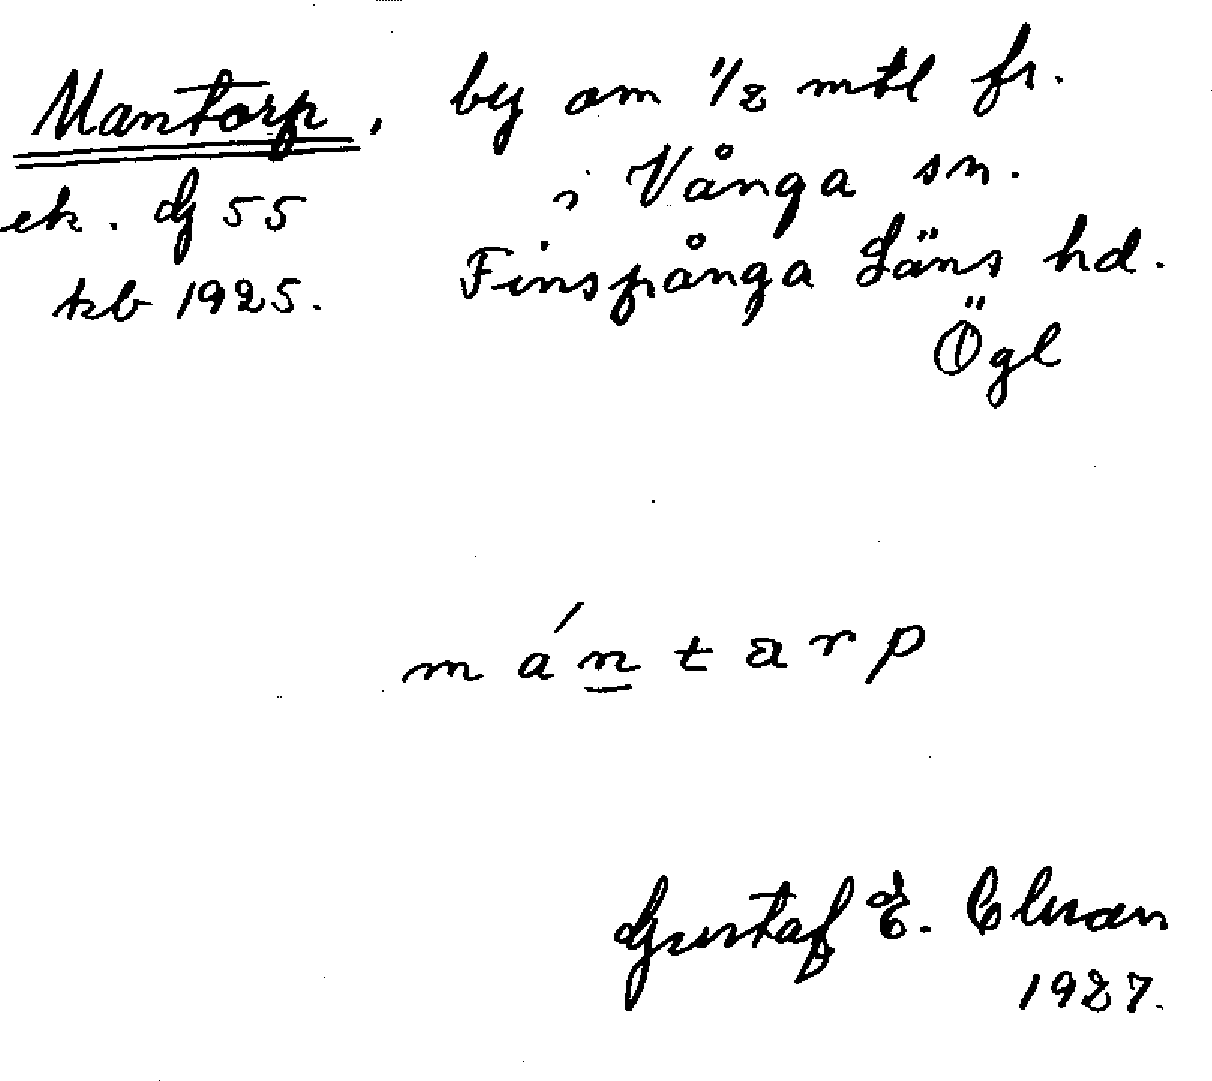 Mantorp, by om 1/2 mtl fr.
i Vånga sn.
ek. dj 55
Finspånga Läns hd.
kb 1925.
Ögl
mántarp
Gustaf E.
1927.